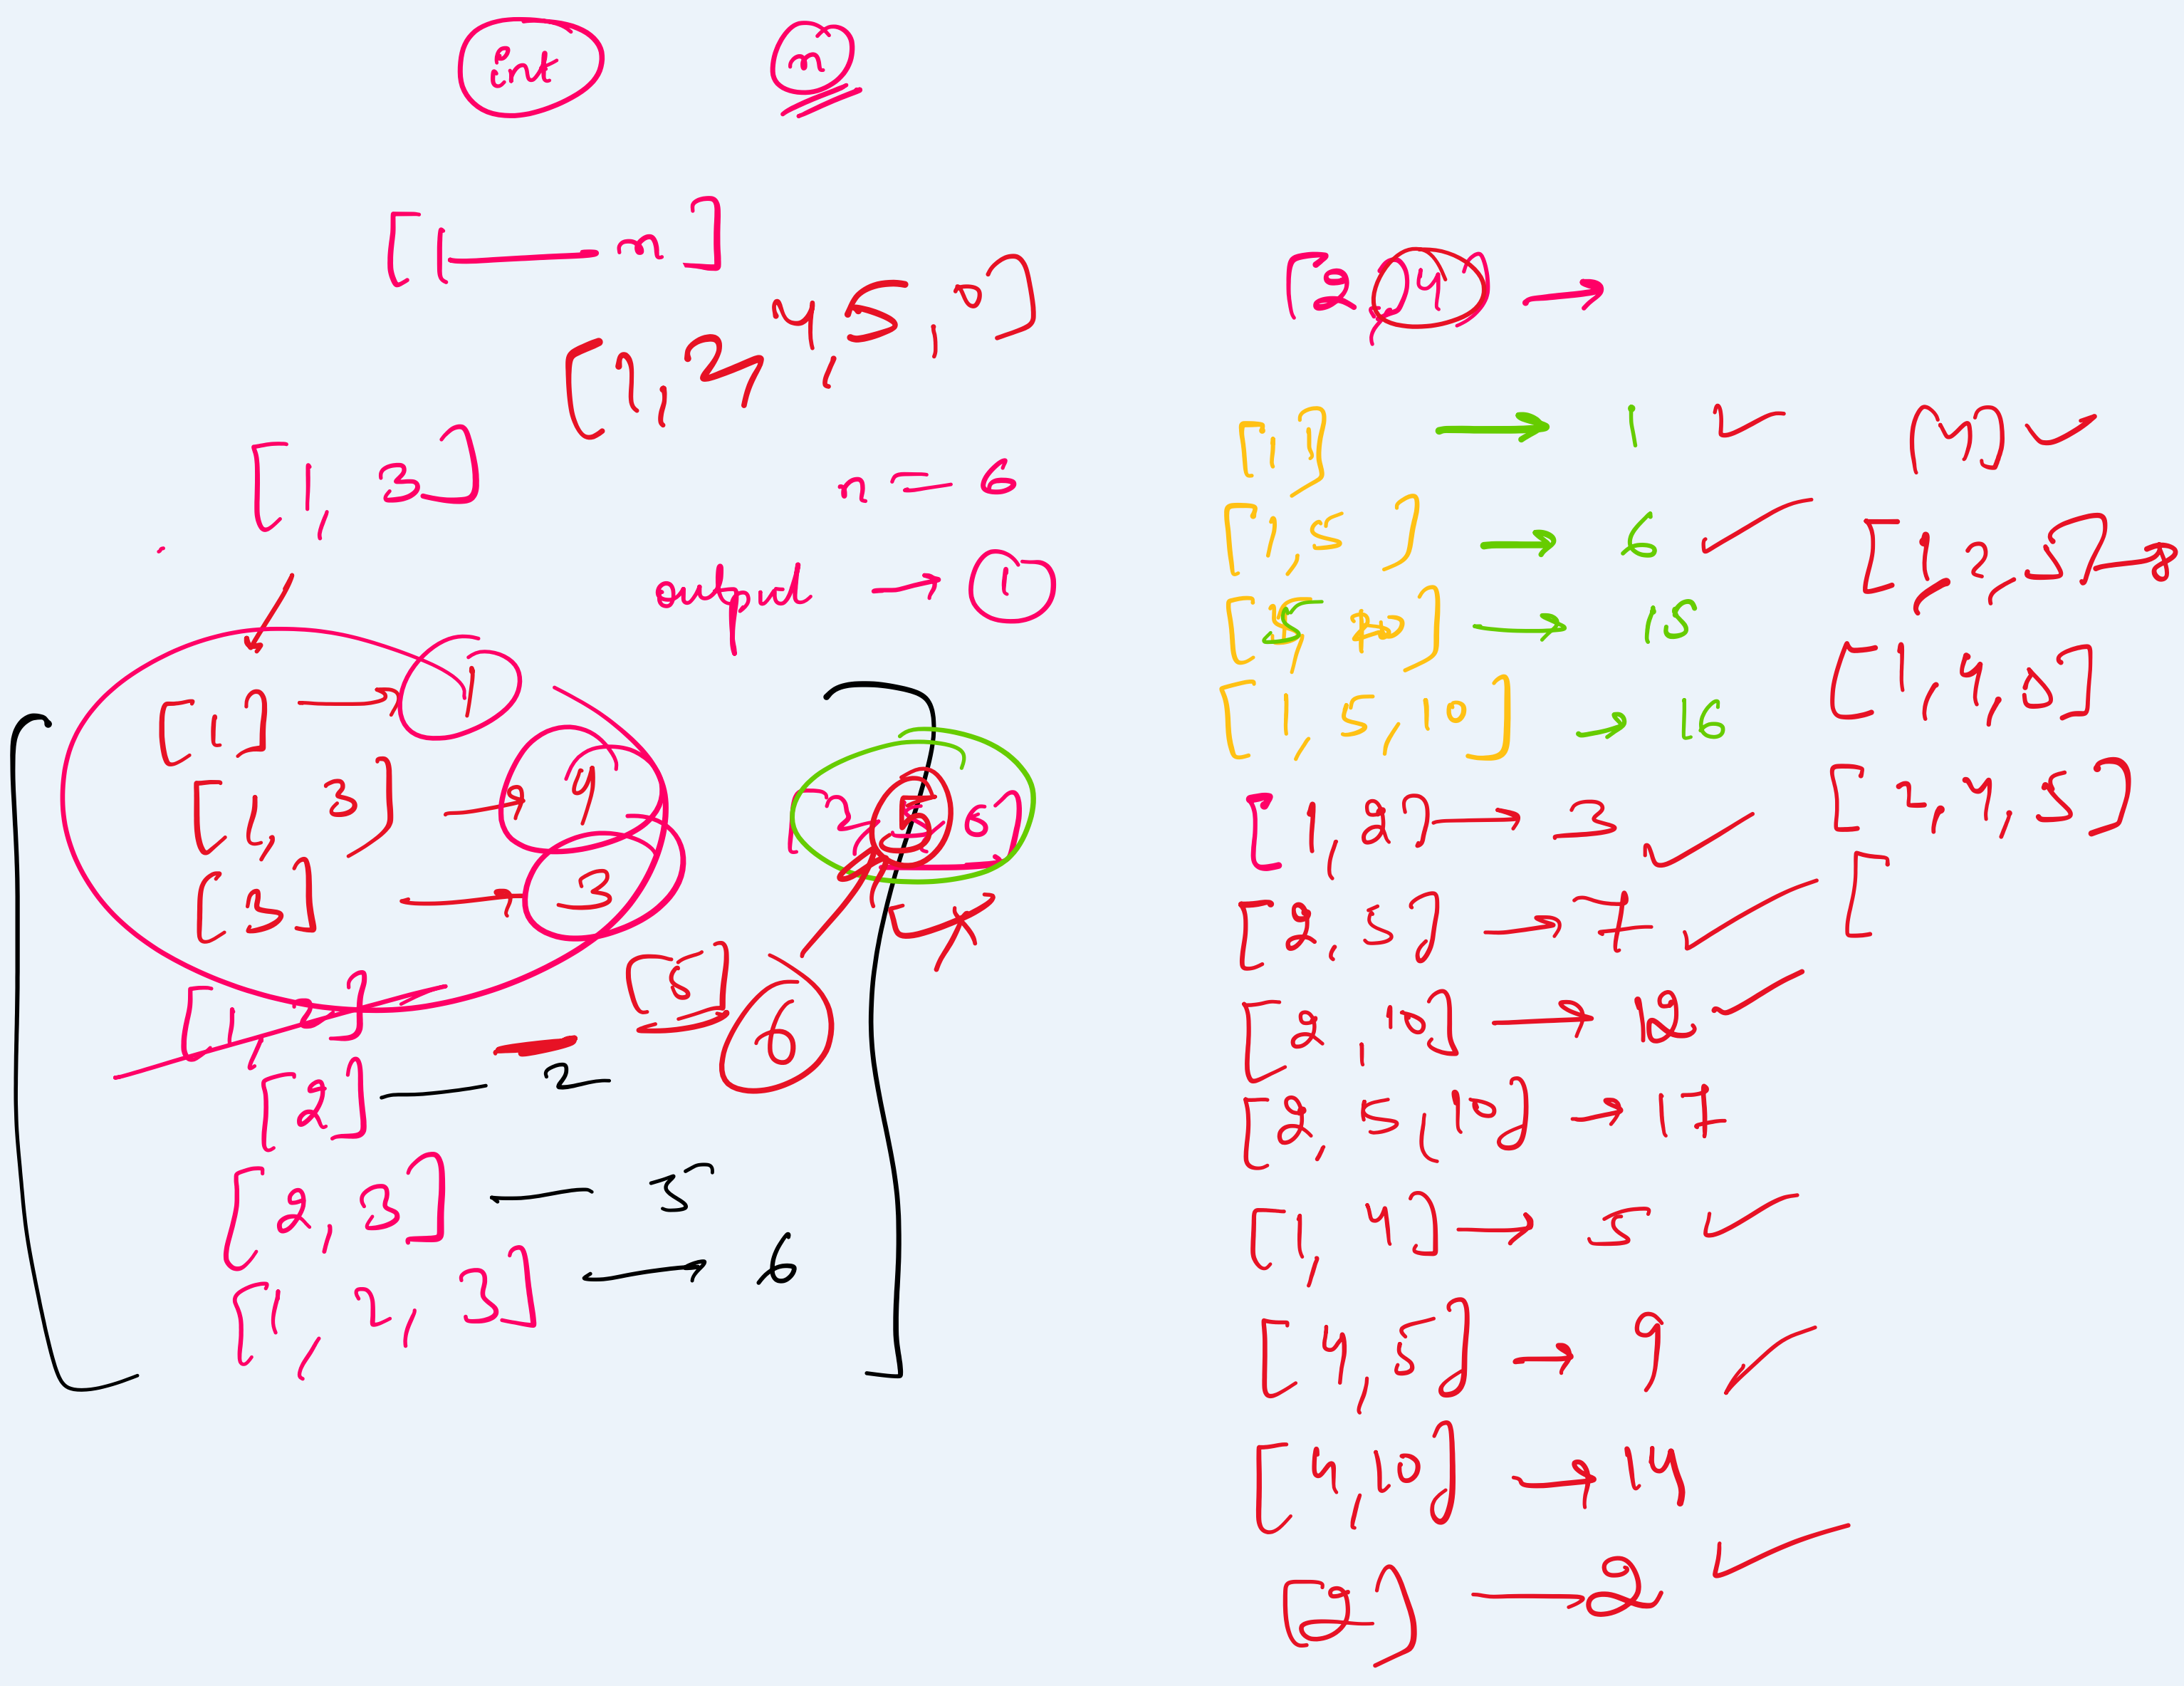 int n
[1 — n]
[1, 2, 4, 5, 10]
[1, 3]
n = 6
output → 1
[1] → 1
[1, 3] → 4
[3] → 3
[1, 2]
[2] — 2
[2, 3] — 5
[1, 2, 3] → 6
[2 5 6]
[5]
6
[2, 4] →
[1] → 1 ✓
[1, 5] → 6 ✓
→ 15
[1, 5, 10] → 16
[1, 2] → 3 ✓
[2, 5] → 7 ✓
[2, 10] → 12 ✓
[2, 5, 10] → 17
[1, 4] → 5 ✓
[4, 5] → 9 ✓
[4, 10] → 14
[2] → 2 ✓
✓
[1, 2, 5] → 8
[1, 4, 5]
[2, 4, 5]
[